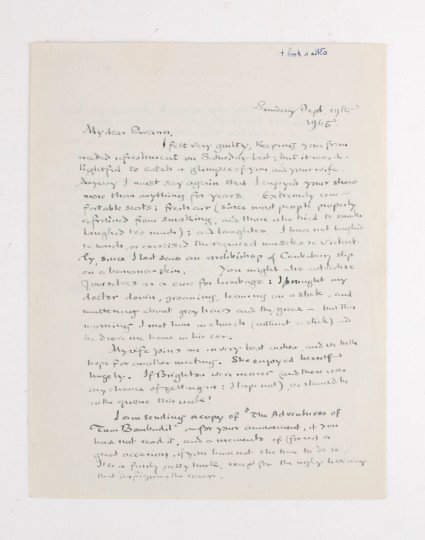 Sunday Sept. 19th
1965.
My dear Swann,
I felt very guilty, keeping you from
needed refreshment on Saturday last; but it was de-
lightful to catch a glimpse of you and your wife.
Anyway I must say again that I enjoyed your show
more than anything for years. Extremely com-
fortable seats; fresh air (since most people properly
refrained from smoking, and those who tried to smoke
laughed too much); and laughter. I have not laughed
so much, or exercised the required muscles so violent-
ly, since I last saw an archbishop of Canterbury slip
on a banana-skin. You might also advertise
yourselves as a cure for lumbago: I brought my
doctor down, groaning, leaning on a stick, and
muttering about grey hairs and the grave – but this
morning I met him in church (without a stick) and
he drove me home in his car.
My wife joins me in very best wishes, and we both
hope for another meeting. She enjoyed herself
hugely. If Brighton were nearer (and there was
any chance of getting in: I hope not), we should be
in the queue this week!
I am sending a copy of "The Adventures of
Tom Bombadil" – for your amusement, if you
have not read it, and a memento of (for us) a
great occasion, if you have not the time to do so.
It is a fairly pretty book, except for the ugly lettering
that disfigures the cover.